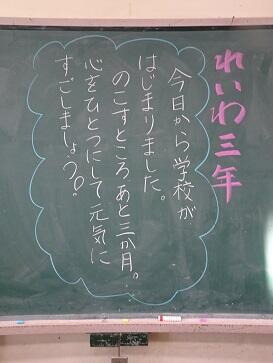 れいわ三年
今日から学校が
はじまりました。
のこすところあと三か月。
心をひとつにして元気に
すごしましょう。